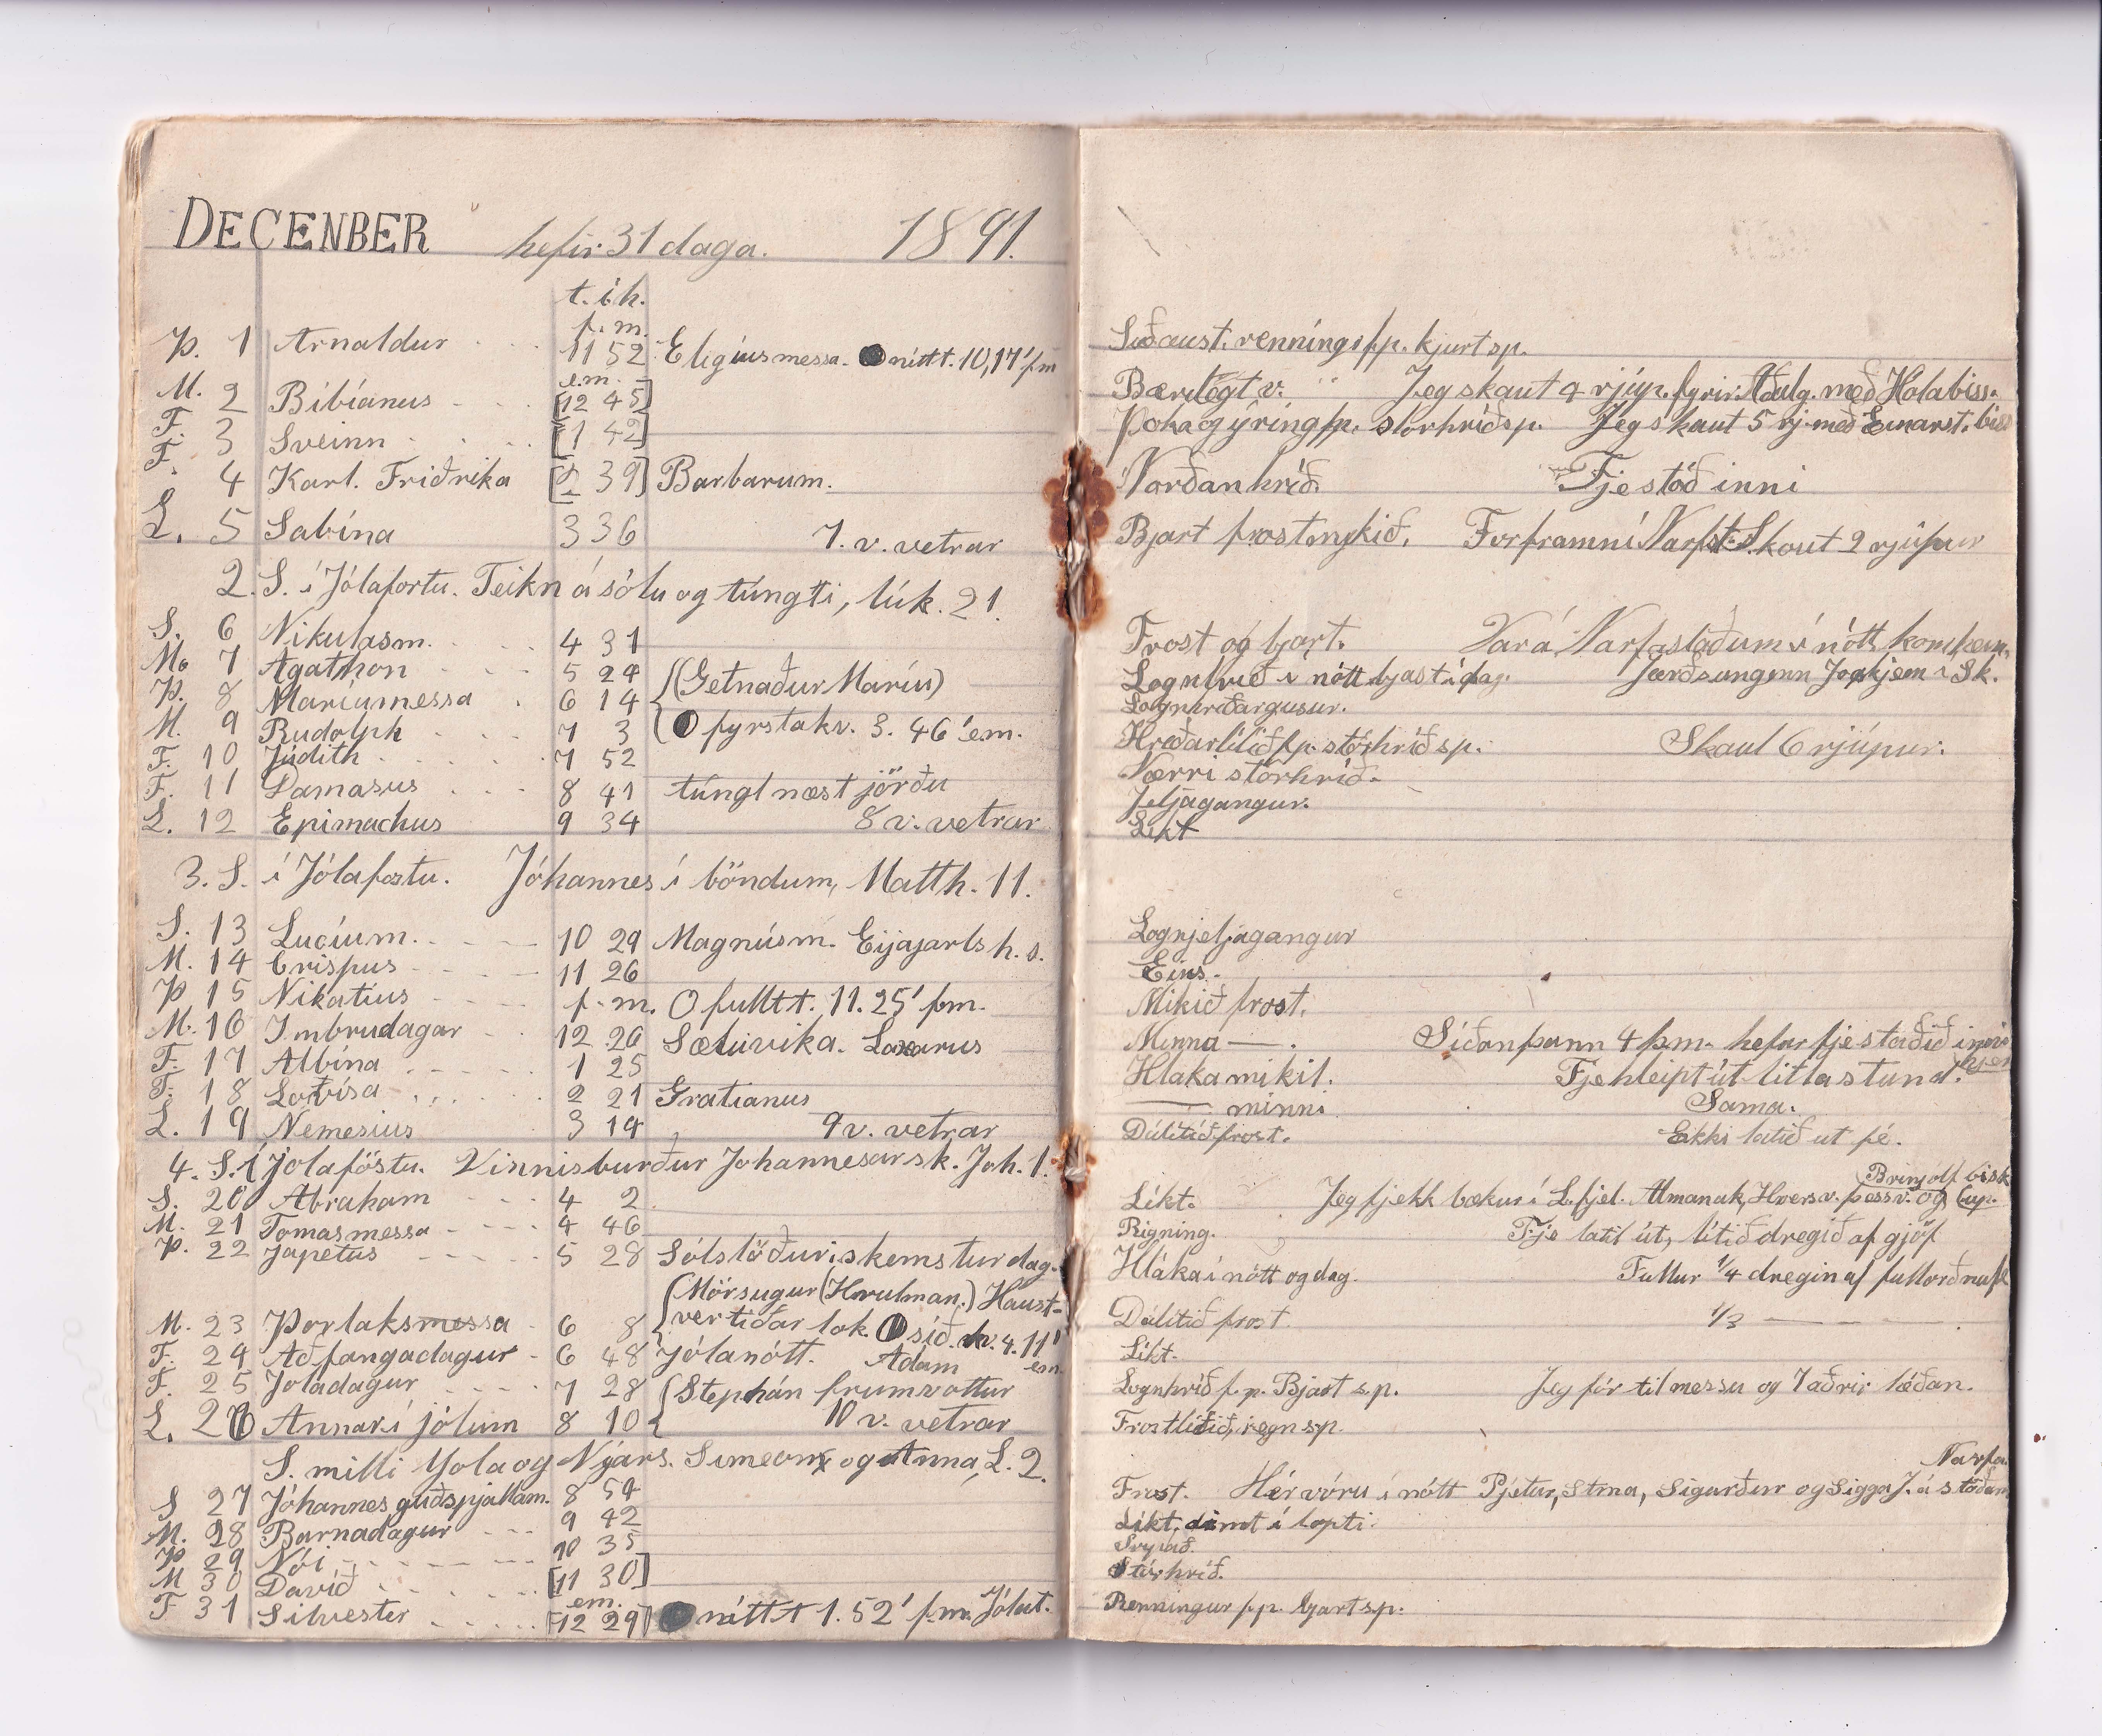 DECENBER hefir 31 daga. 1891.
t. í h.
f. m.
Þ. 1 Arnaldur 11 52 Elegíusmessa. nítt t. 10,17' fm
e.m.
M. 2 Bibíanus [12 45]
F. 3 Sveinn [1 42]
F. 4 Karl. Friðrika [2 39] Barbarum.
L. 5 Sabína 3 36 7. v. vetrar
2. S. í Jólaföstu. Teikn á sólu og túngli, lúk. 21.
S. 6 Nikulasm. 4 31
M. 7 Agathon 5 24 (Getnaður Maríu)
Þ. 8 Maríumessa 6 14
M. 9 Rudolph 7 3 fyrsta kv. 3. 46' em.
F. 10 Júdith 7 52
F. 11 Damasus 8 41 túngl næst jörðu
L. 12 Epimachus 9 34 8 v. vetrar
3. S. í Jólafostu. Jóhannes í böndum, Matth. 11.
S. 13 Lucíum. 10 29 Magnúsm. Eijajarls h. s.
M. 14 Crispus 11 26
Þ 15 Nikatíus f. m. fullt t. 11. 25' fm.
M. 16 Imbrudagar 12 26 Sæluvika. Lazarus
F. 17 Albína 1 25
F. 18 Lovísa 2 21 Gratianus
L. 19 Nemesíus 3 14 9 v. vetrar
4. S. í Jolaföstu. Vinnisburður Jóhannesar sk. Joh. 1.
S. 20 Abraham 4 2
M. 21 Tomasmessa 4 46
Þ. 22 Japetus 5 28 Sólstöður, skemstur dag.
(Mörsugur (Hrutman.) Haust-
M. 23 Þorlaksmessa 6 8 vertíðar lok. síð. kv. 4. 11'
F. 24 Aðfangadagur 6 48 Jólanótt. Adam em.
F. 25 Joladagur 7 28 (Stephán frumvottur
L. 26 Annar í jólum 8 10 10 v. vetrar
S. milli Jola og Nýárs. Simeon og Anna, L. 2.
S 27 Jóhannes guðspjallam. 8 54
M. 28 Barnadagur 9 42
Þ 29 Nói 10 35
M 30 Davíð [11 30]
em.
F 31 Silvester [12 29] nítt t 1. 52' f.m. Jólat.
Suðaust. renníngs fp. bjart sp.
Bærilegt v. Jeg skaut 4 rjúp. fyrir með Holabiss.
Þoka og ýring fp. stórhríð sp. Jeg skaut 5 rj. með
Norðanhríð. Fje stóð inni
Bjart frost mykið. Skaut 2 rjúpur
Frost og bjart. Var á Narfastöðum í nótt, kom heim,
Lognhríð í nótt bjart í dag.
Lognhríðargusur.
Hríðarlítið fp. stórhríð sp. Skaut 6 rjúpur.
Nærri stórhríð.
Jeljagangur.
Líkt
Lognjeljagangur
Eins.
Mikið frost.
Minna —. Síðan þann 4 þ.m. hefur fje staðið inni hjer
Hláka mikil. Fje hleipt út litla stund.
— minni Sama.
Dálitið frost. Ekki latið ut fé.
Brinjolf bisk
Líkt. Jeg fjekk bækur í L. fjel. Almanak, Hversv. þessv. og
Rigning. Fje latið út, lítið dregið af gjöf
Hláka í nótt og dag. Fullur 1/4 dregin af
Dálitið frost. 1/3 — — —
Líkt.
Lognhríð f. p. Bjart s. p. Jeg fór til messu og 7 aðrir héðan.
Frostlítið, regn sp.
Narfa
Frost. Hér vóru í nótt Pjetur, Stína, Sigurður og Sigga J. á stöðum
Líkt, dimt í lopti.
Stórhríð.
Renningur fp. bjart sp.